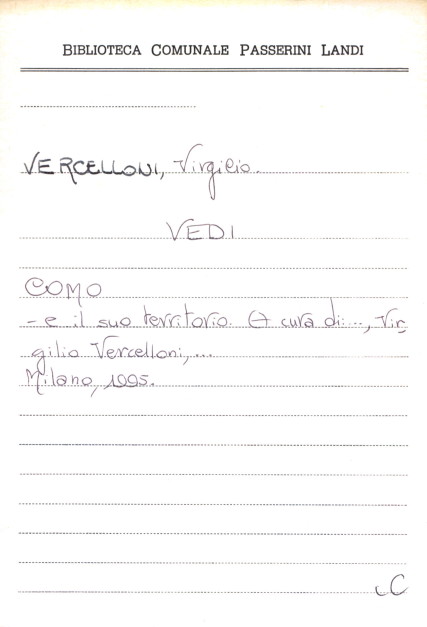 BIBLIOTECA COMUNALE PASSERINI LANDI
VERCELLONI, Virgilio.
VEDI
COMO
- e il suo territorio. A cura di: ..., Vir-
gilio Vercelloni, ...
Milano, 1995.